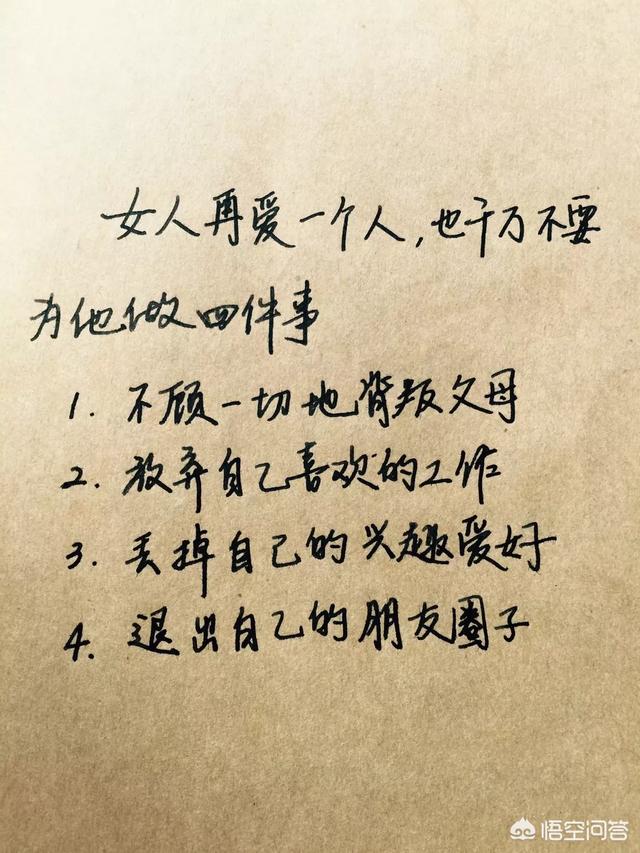 女人再爱一个人，也千万不要
为他做四件事
1. 不顾一切地背叛父母
2. 放弃自己喜欢的工作
3. 丢掉自己的兴趣爱好
4. 退出自己的朋友圈子
悟空问答